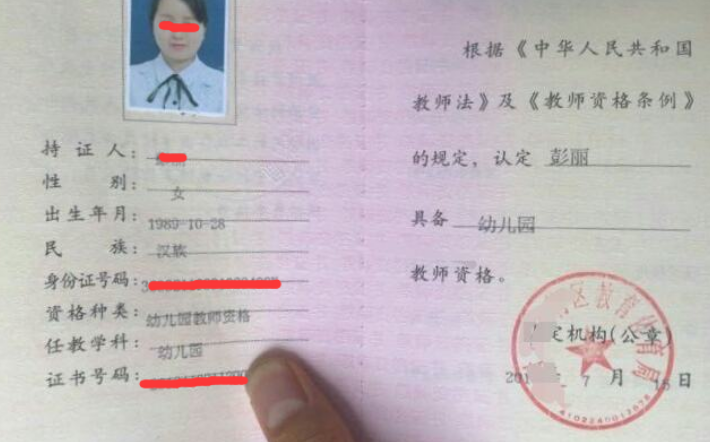 持证人：
性别：女
出生年月：1989-10-28
民族：汉族
身份证号码：
资格种类：幼儿园教师资格
任教学科：幼儿园
证书号码：
根据《中华人民共和国
教师法》及《教师资格条例》
的规定，认定 彭丽
具备 幼儿园
教师资格。
定机构(公章)
7月15日
区教育体育局